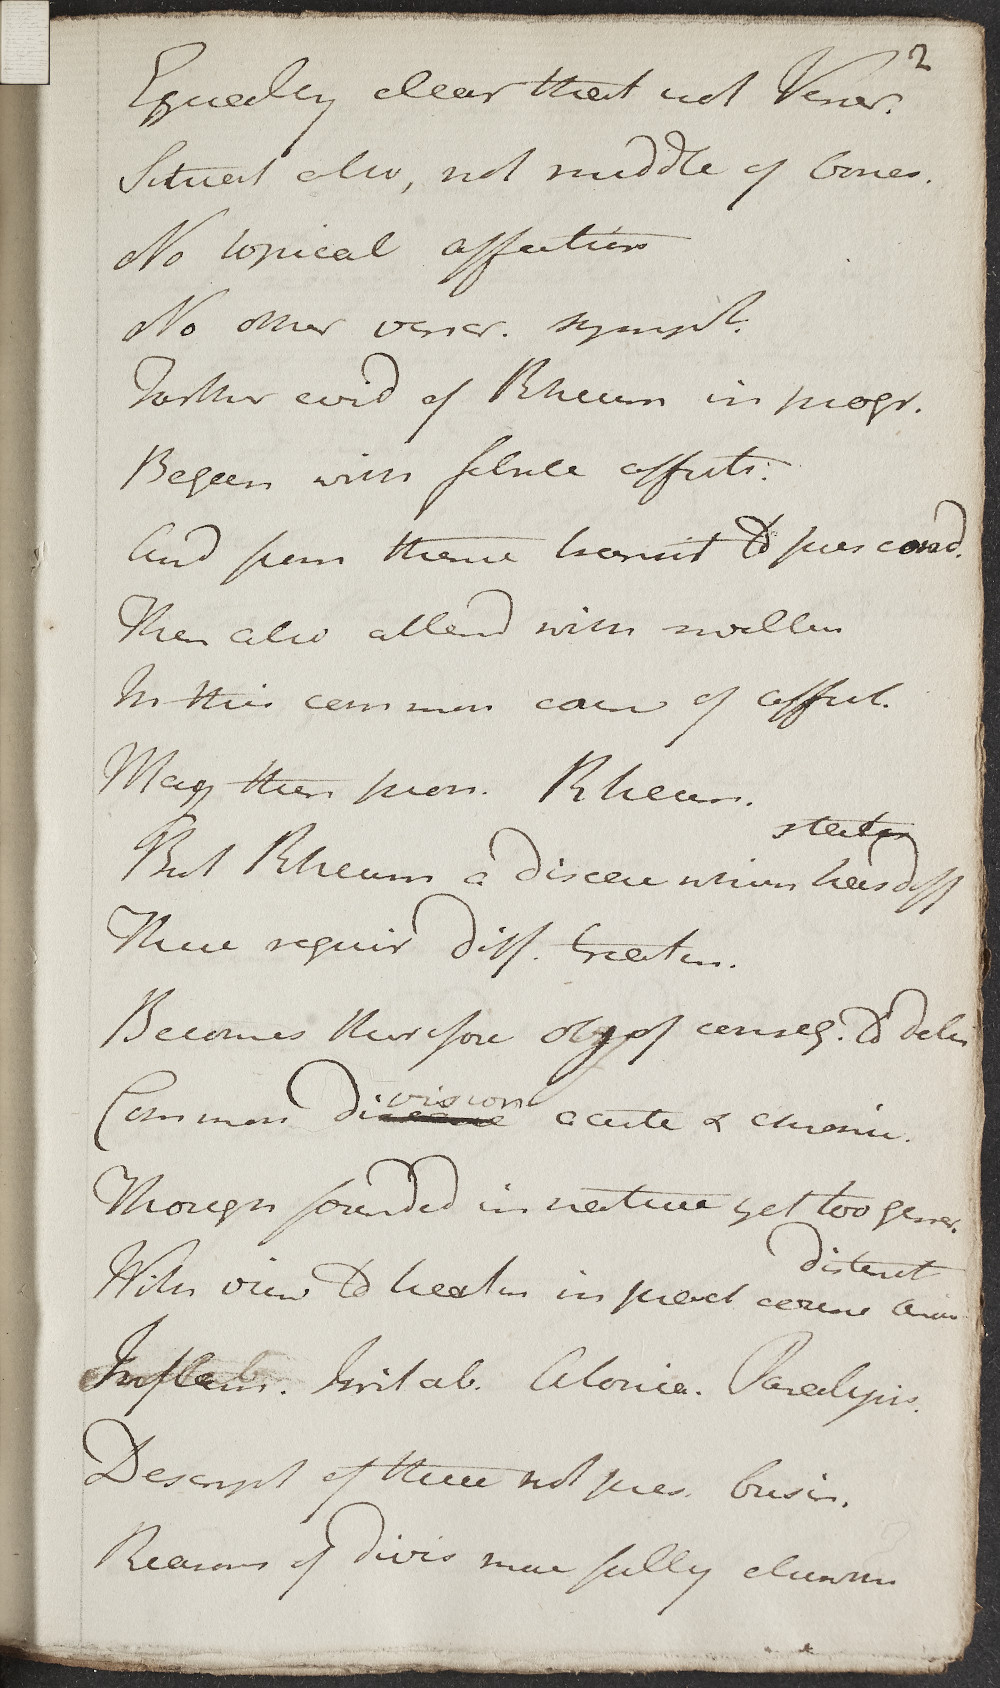 2
Equally clear that not Vener.
Situat also, not middle of bones.
No topical affection
No other vener. sympt.
Farther evid of Rheum in progr.
Began with febrile affect:
And from thence transit to pres cond.
Then also attend with swellen
In this common course of affect.
May then pron. Rheum.
states
But Rheum a disease which has diff
These requir diff. treatm.
Becomes therefore obj of conseq. to delin
vision
Common disease acute & chronic.
Though founded in nature yet too gener.
distinct
With view to treatm in pract
Inflam. Irritab. Atonica. Paralysis.
Descript of these not pres. busin.
Reasons of divis more fully elsewh